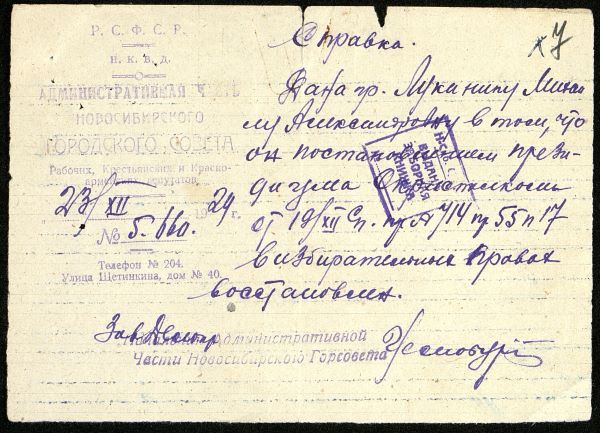 Р. С. Ф. С. Р.
Н. К. В. Д.
АДМИНИСТРАТИВНАЯ ЧАСТЬ
НОВОСИБИРСКОГО
ГОРОДСКОГО СОВЕТА
Рабочих, Крестьянских и Красно-
армейских депутатов.
23/XII 1929 г.
№ 5.660.
Телефон № 204.
Улица Щетинкина, дом № 40.
ху
Справка.
Дана гр. Луканину Михаи
лу Александровичу в том, что
он постановлением прези-
диума Окрисполкома
от 19/XII с/г. пр. № 714 пр 55 п 17
в избирательных правах
восстановлен.
ВЫДАНА
ЗАБОРНАЯ
КНИЖКА
Зав.
Административной
Части Новосибирского Горсовета